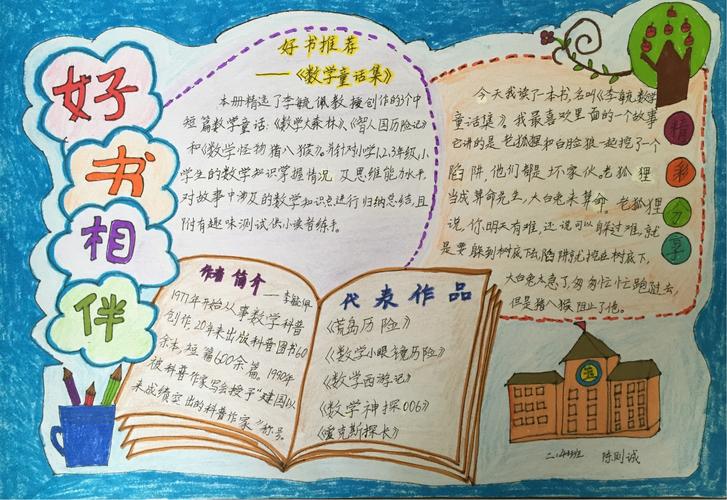 好书相伴
好书推荐
——《数学童话集》
本册精选了李毓佩教授创作的3个中
短篇数学童话:《数学大森林》、《智人国历险记》
和《数学怪物猪八猴》。并针对小学1,2,3年级,小
学生的数学知识掌握情况 及思维能力水平
对故事中涉及的数学知识点进行归纳总结,且
附有趣味测试供小读者练手。
今天我读了一本书,名叫《李毓数学
童话集》,我最喜欢里面的一个故事
它讲的是 老狐狸和白脸狼一起挖了一个
陷阱,他们都是坏家伙。老狐狸
当成算命先生,大白兔来算命。老狐狸
说,你明天有难,还说可以躲过难,就
是要躲到树底下去,陷阱就挖在树底下,
大白兔太急了,匆匆忙忙跑过去,
但是猪八猴阻止了他。
精彩分享
作者简介——李毓佩
1977年开始从事数学科普
创作,20年来出版科普图书60
余本,短篇600余篇。1990年
被科普作家写会授予“建国以
来成绩空出的科普作家”称号。
代表作品
《荒岛历险》
《数学小眼镜历险》
《数学西游记》
《数学神探006》
《爱克斯探长》
陈则诚